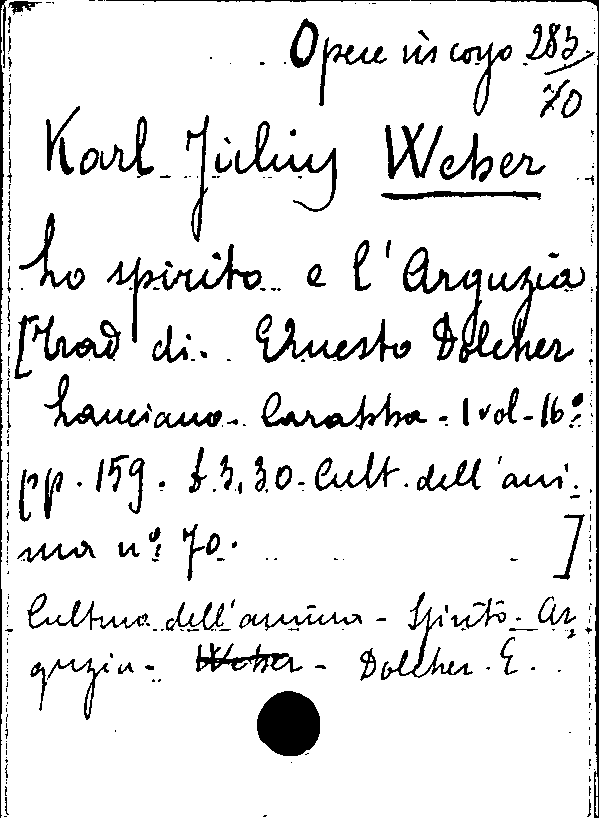 Opere in corso 283
70
Karl Julius Weber
Lo spirito e l'Arguzia
[Trad di. Ernesto Dolcher
Lanciano. Carabba - 1 vol - 16°
pp. 159. £ 3,30 - Cult. dell'ani-
ma n° 70. ]
Cultura dell'anima - Spirito - Ar
guzia - Weber - Dolcher E.